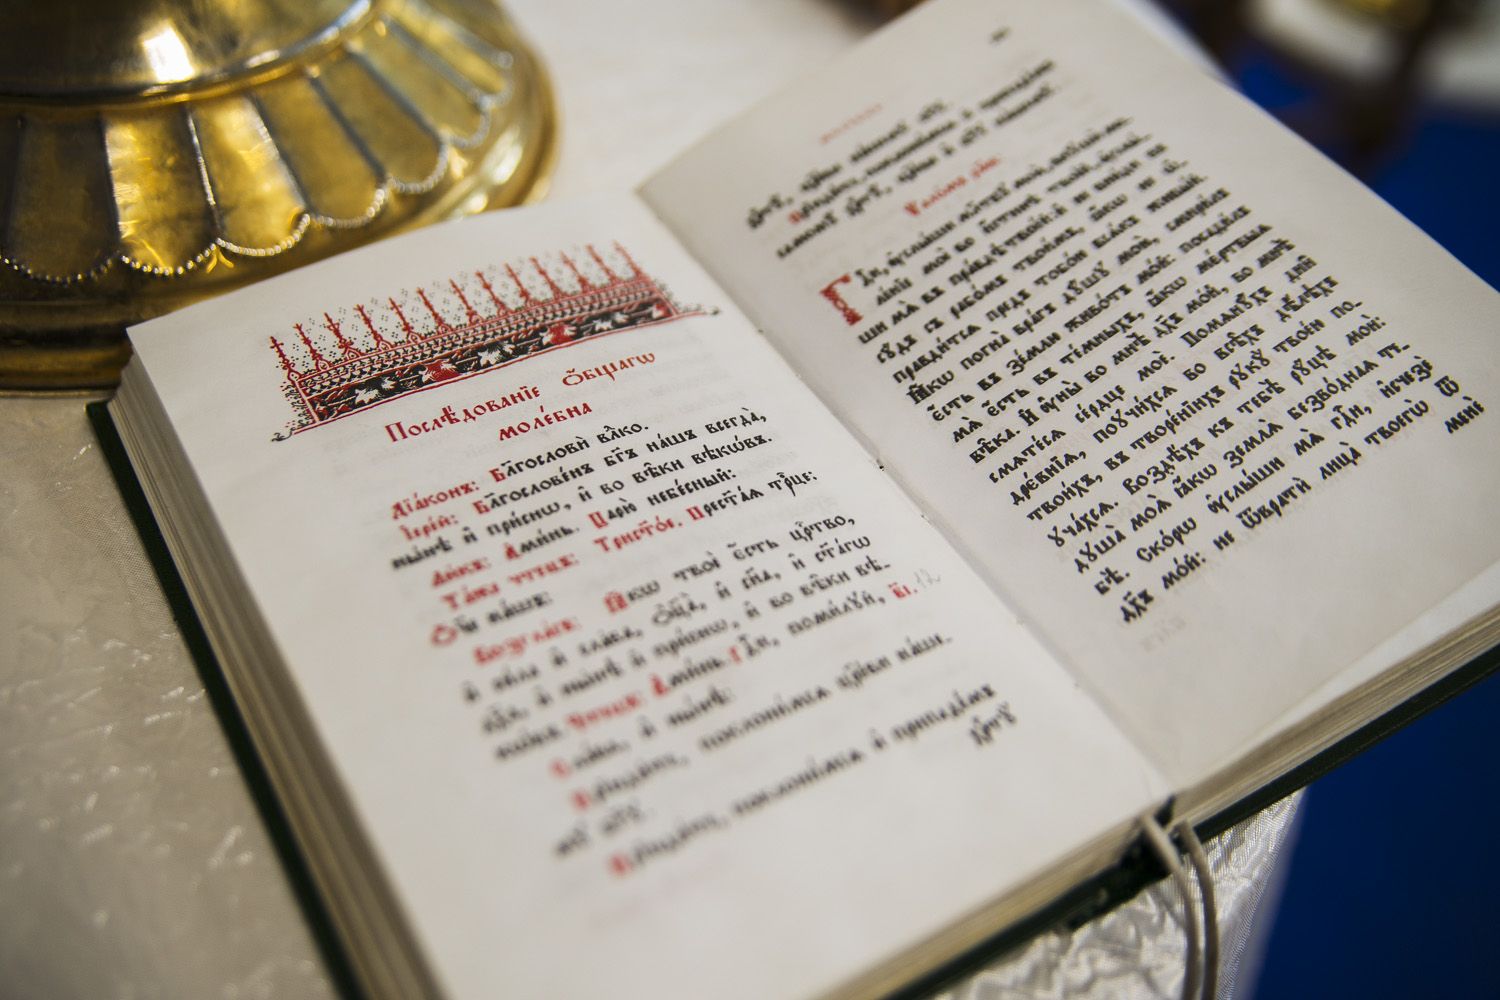 Послѣ́дованїе ѻ҆́бщагѡ
моле́бна
Дїа́конъ: Бл҃гословѝ влⷣко.
І҆ере́й: Бл҃гослове́нъ бг҃ъ на́шъ всегда̀,
ны́нѣ и҆ при́снѡ, и҆ во вѣ́ки вѣкѡ́въ.
Ли́къ: А҆ми́нь. Царю̀ небе́сный:
Та́же чте́цъ: Трист҃о́е. Прест҃а́ѧ трⷪ҇це:
Ѻ҆́ч҃е на́шъ:
Возгла́съ: Ꙗ҆́кѡ твоѐ є҆́сть црⷭ҇тво,
и҆ си́ла и҆ сла́ва, ѻ҆ц҃а̀, и҆ сн҃а, и҆ ст҃а́гѡ
дх҃а, и҆ ны́нѣ и҆ при́снѡ, и҆ во вѣ́ки вѣ-
кѡ́въ. Чте́цъ: А҆ми́нь. Гдⷭ҇и, поми́лꙋй, в҃і. 12
Сла́ва, и҆ ны́нѣ:
Прїиди́те, поклони́мсѧ цр҃е́ви на́ше-
мꙋ̀ бг҃ꙋ.
Прїиди́те, поклони́мсѧ и҆ припаде́мъ
хрⷭ҇тꙋ̀
хрⷭ҇тꙋ̀, цр҃е́ви на́шемꙋ бг҃ꙋ.
Прїиди́те, поклони́мсѧ и҆ припаде́мъ
самомꙋ̀ хрⷭ҇тꙋ̀, цр҃е́ви и҆ бг҃ꙋ на́шемꙋ.
Ѱало́мъ рм҃в:
Гдⷭ҇и, ᲂу҆слы́ши моли́твꙋ мою̀, внꙋшѝ мо-
ле́нїе моѐ во и҆́стинѣ твое́й, ᲂу҆слы́-
ши мѧ̀ въ пра́вдѣ твое́й: и҆ не вни́ди въ
сꙋ́дъ съ рабо́мъ твои́мъ, ꙗ҆́кѡ не ѡ҆-
правди́тсѧ пред̾ тобо́ю всѧ́къ живы́й.
Ꙗ҆́кѡ погна̀ вра́гъ дꙋ́шꙋ мою̀, смири́лъ
є҆́сть въ зе́млю живо́тъ мо́й: посади́лъ
мѧ̀ є҆́сть въ те́мныхъ, ꙗ҆́кѡ мє́ртвыѧ
вѣ́ка. И҆ ᲂу҆ны̀ во мнѣ̀ дꙋ́хъ мо́й, во мнѣ̀
смѧте́сѧ се́рдце моѐ. Помѧнꙋ́хъ дни̑
дрє́внїѧ, поꙋчи́хсѧ во всѣ́хъ дѣ́лѣхъ
твои́хъ, въ творе́нїихъ рꙋкꙋ̀ твое́ю по-
ꙋча́хсѧ. Воздѣ́хъ къ тебѣ̀ рꙋ́цѣ моѝ:
дꙋша̀ моѧ̀ ꙗ҆́кѡ землѧ̀ безво́днаѧ те-
бѣ̀. Ско́рѡ ᲂу҆слы́ши мѧ̀ гдⷭ҇и, и҆счезѐ
дꙋ́хъ мо́й: не ѿвратѝ лица̀ твоегѡ̀ ѿ
менє̀